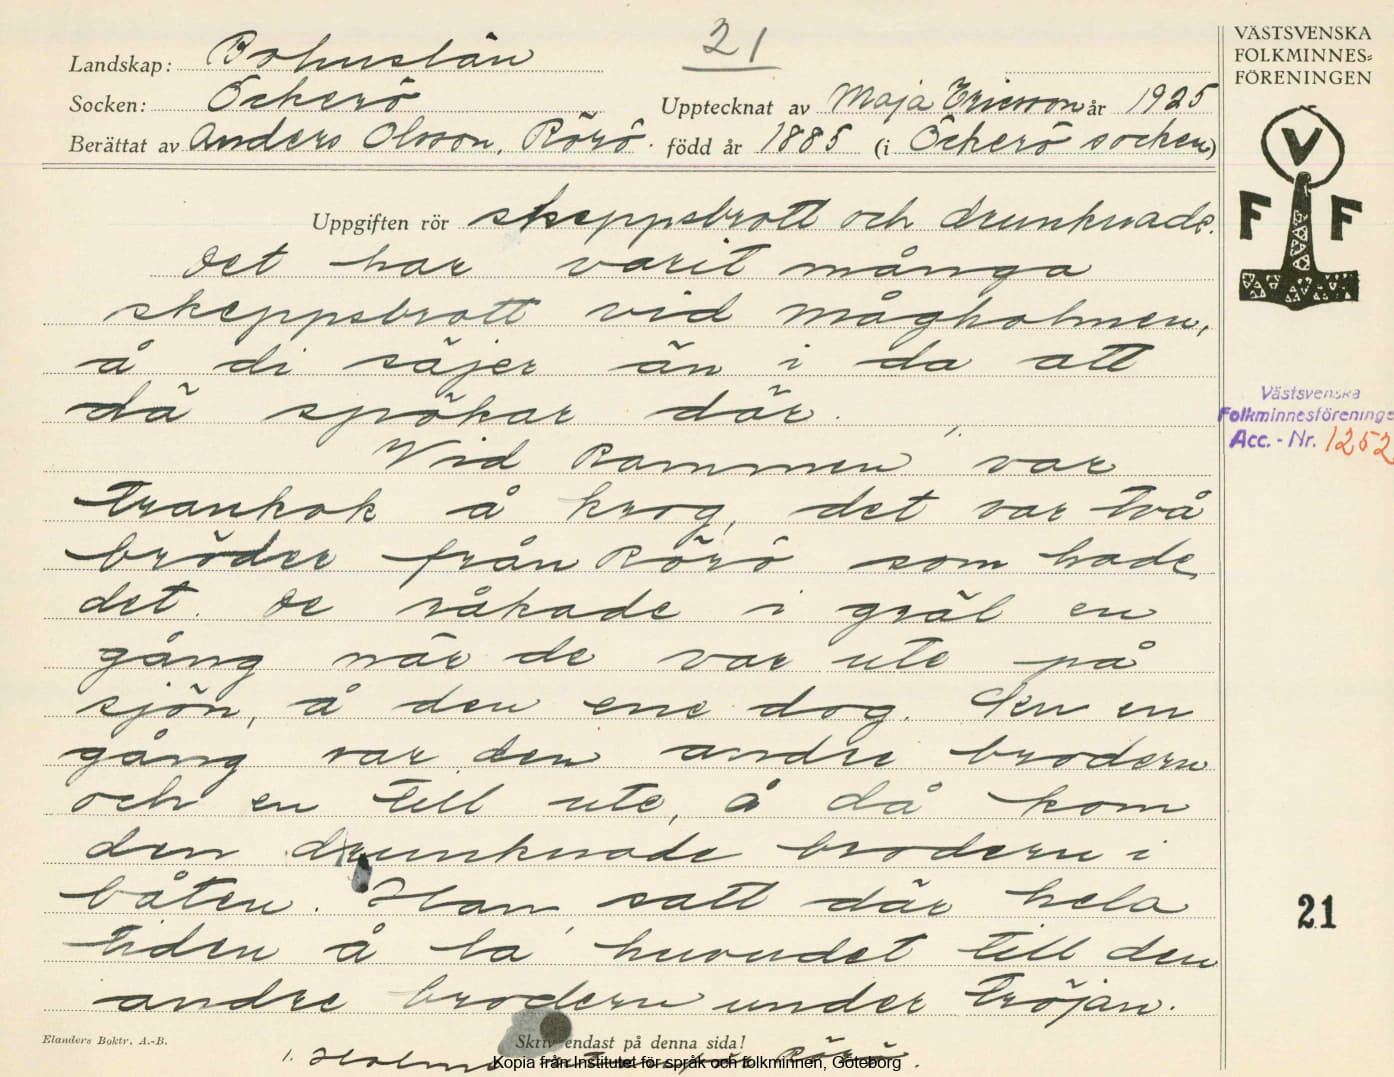 21
Landskap: Bohuslän
Socken: Öckerö
Upptecknat av Maja Ericsson år 1925
Berättat av Anders Olsson, Rörö. född år 1885 (i Öckerö socken)
Uppgiften rör skeppsbrott och drunknade.
Det har varit många
skeppsbrott vid mågholmen,
å di säjer än i da att
dä spökar där.
Vid Rammen var
trankok å krog, det var två
bröder från Rörö som hade
det. De råkade i gräl en
gång när de var ute på
sjön, å den ene dog. Sen en
gång var den andre brodern
och en till ute, å då kom
den drunknade brodern i
båten. Han satt där hela
tiden å la huvudet till den
andre brodern under tröjan.
Elanders Boktr. A.-B.
Skriv endast på denna sida!
1. Holme Rörö.
Kopia från Institutet för språk och folkminnen, Göteborg
VÄSTSVENSKA
FOLKMINNES=
FÖRENINGEN
V
F F
Västsvenska
Folkminnesföreninge
Acc. - Nr. 1252
21